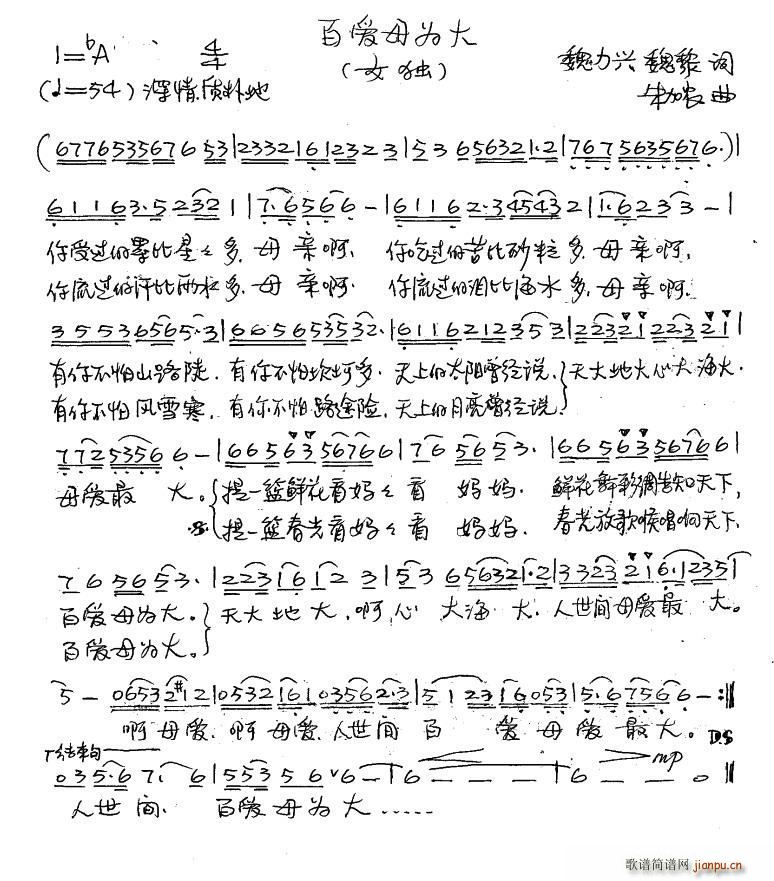 百爱母为大
1=bA 4/4
(女独)
魏力兴 魏黎 词
(♩=54) 深情质朴地
朱加农 曲
(6776535676 53|23321612323|53656321·2|7675635676·)|
61163·52321|7·6566-|61162·345432|1·6233-|
你受过的累比星星多,母亲啊, 你吃过的苦比砂粒多,母亲啊,
你流过的汗比雨水多,母亲啊. 你流过的泪比海水多,母亲啊.
35536565·3|66565353 2·|6116212353|223212232 1|
有你不怕山路陡,有你不怕坎坷多.天上的太阳曾经说,天大地大心大海大.
有你不怕风雪寒,有你不怕路途险,天上的月亮曾经说
77253566-|66563567 66|76 5653·|6656356766|
母爱最 大。提一篮鲜花看妈妈看 妈妈. 鲜花舞彩绸告知天下,
提一篮春光看妈妈看 妈妈. 春光放歌喉唱响天下.
765653·|2231612 3|53656321·2|3323216·1235|
百爱母为大。天大地大,啊,心 大海 大.人世间母爱最 大。
百爱母为大。
5-06532#12|05321610356 2·3|5123 16053|5·67566-:‖
啊母爱.啊母爱.人世间 百 爱母爱最大。 D.S
结束句 mp
035·67·6|55356 6∨6-|6----|6--0‖
人世间. 百爱母为大......
歌谱简谱网
jianpu.cn